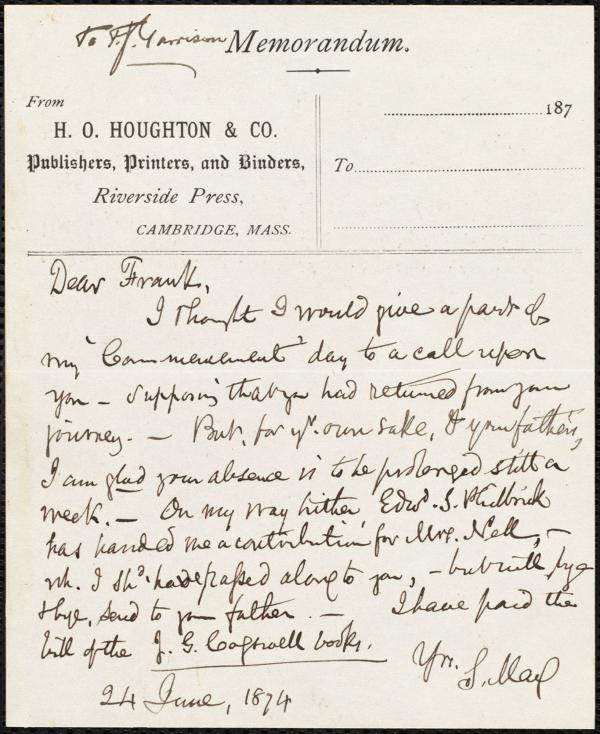 To F. J. Garrison
Memorandum.
From
H. O. HOUGHTON & CO.
Publishers, Printers, and Binders,
Riverside Press,
CAMBRIDGE, MASS.
187
To
Dear Frank,
I thought I would give a part of
my "Commencement" day to a call upon
you – supposing that you had returned from your
journey. – But, for yr. own sake, & your father's,
I am glad your absence is to be prolonged still a
week. – On my way hither Edwd. S. Philbrick
has handed me a contribution for Mrs. Nell, –
wh. I shd. have passed along to you, – but will, bye
& bye, send to your father. – I have paid the
bill of the J. G. Cogswell books.
Yrs. S. May
24 June, 1874